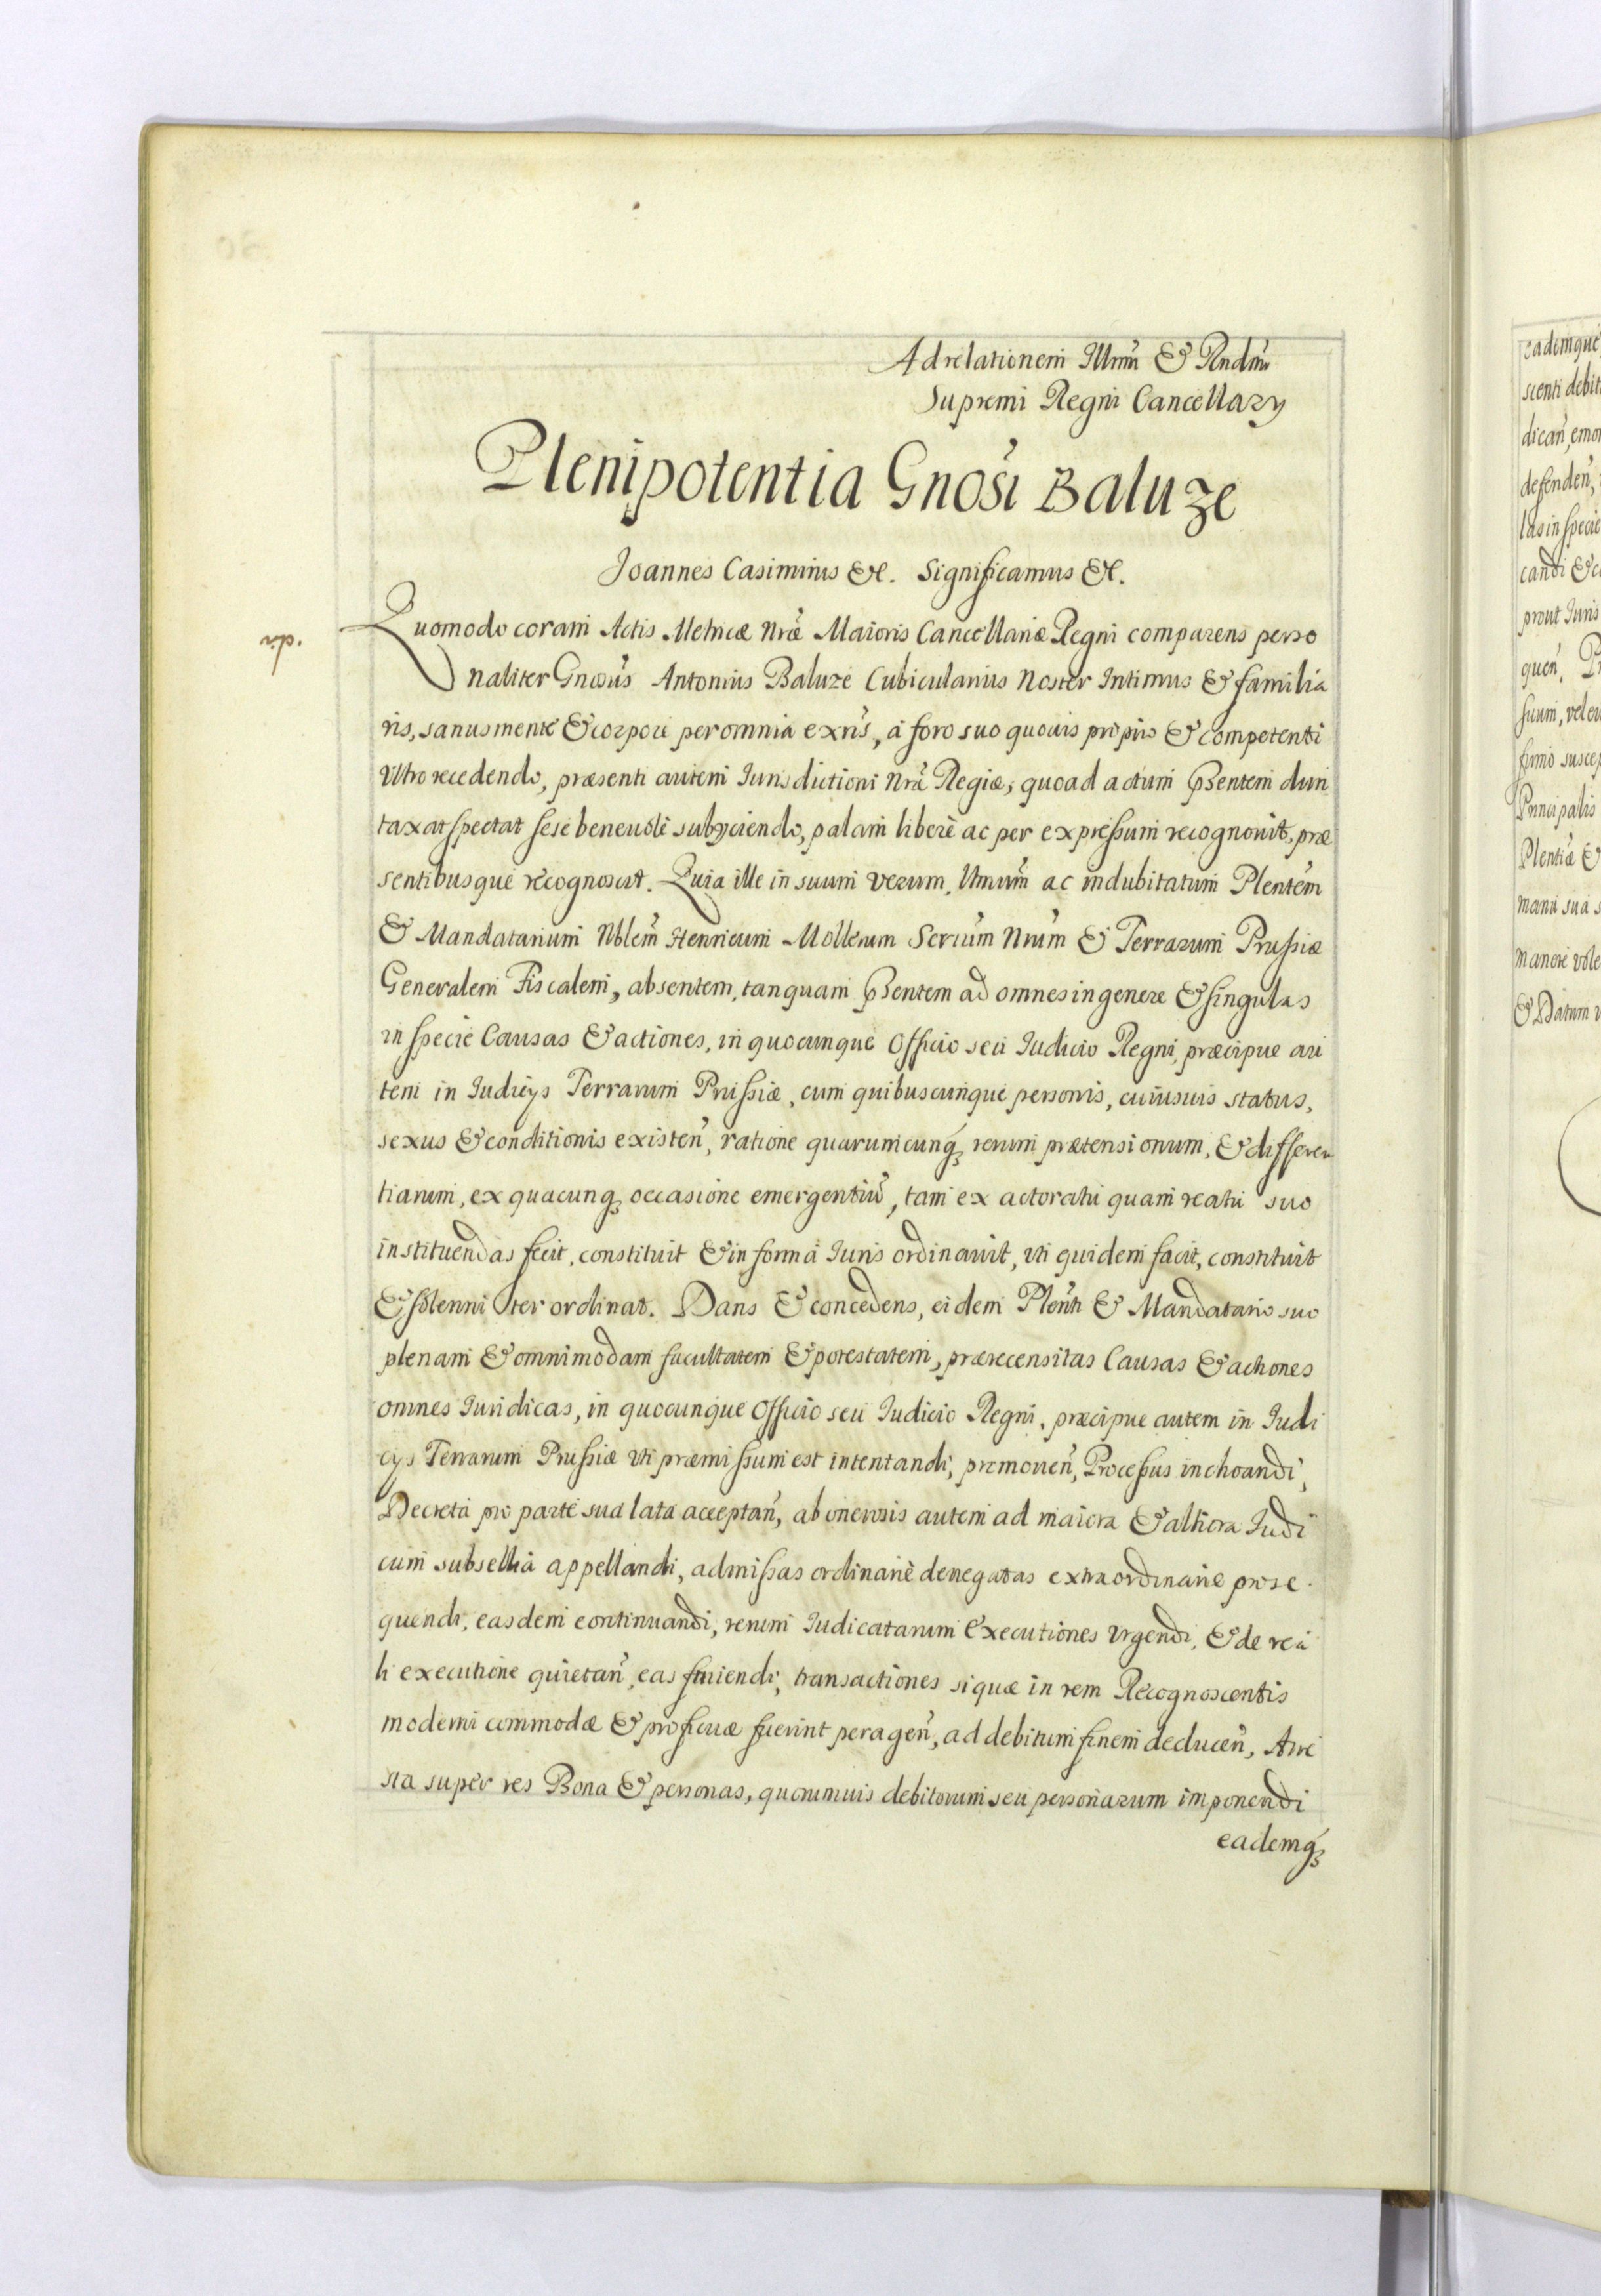 Ad relationem Illmi̇ & Rndmi̇
Supremi Regni Cancellarÿ
Plenipotentia Gnosi Baluze
Joannes Casimirus &c. Significamus &c.
Quomodo coram Actis Metricæ Nræ Maioris Cancellariæ Regni comparens perso
naliter Gnosus Antonius Baluze Cubicularius Noster Intimus & familia
ris, sanus mente & corpore per omnia exns, á foro suo quouis proprio & competenti
Vltro recedendo, præsenti autem Iurisdictioni Nræ Regiæ, quoad actum pntem dun
taxat spectat sese beneuolè subÿciendo, palam liberè ac per expressum recognouit, præ
sentibusque recognoscit. Quia ille in suum verum, l̃timum ac indubitatum Plentem
& Mandatarium Nblem Henricum Mollerum Serium Nrum & Terrarum Prussiæ
Generalem Fiscalem, absentem, tanquam pntem ad omnes in genere & singulas
in specie Causas & actiones, in quocunque Officio seu Iudicio Regni, præcipue au
tem in Iudicÿs Terrarum Prussiæ, cum quibuscunque personis, cuiusuis status,
sexus & conditionis existen̄, ratione quarumcunq́ꝫ rerum prætensionum, & differen
tiarum, ex quacunqꝫ occasione emergentiũ, tam ex actoratu quam reatu suo
instituendas fecit, constituit & in formá Iuris ordinauit, vti quidem facit, constituit
& solenniter ordinat. Dans & concedens, eidem Plen̄ti & Mandatario suo
plenam & omnimodam facultatem & potestatem, præcensitas Causas & actiones
omnes Iuridicas, in quocunque Officio seu Iudicio Regni, præcipue autem in Iudi
cÿs Terrarum Prussiæ vti præmissum est intentandi, promouen̄, Processus inchoandi,
Decreta pro parte sua lata acceptan̄, ab onerosis autem ad maiora & altiora Iudi
cum subsellia appellandi, admissas ordinariè denegatas extraordinarie prose
quendi, easdem continuandi, rerum Iudicatarum Executiones vrgendi, & de rea
li executione quietan̄, eas finiendi, transactiones si quæ in rem Recognoscentis
moderni commodæ & proficuæ fuerint peragen̄, ad debitum finem deducen̄, Arre
sta super res Bona & personas, quorumuis debitorum seu personarum imponendi
eademq́ꝫ
eademque
scenti debit
dican̄, emo
defenden̄,
las in specie
candi & c
prout Iuris
quen̄, Pr
suum, vel eu
firmo suscep
Principalis
Plentiæ &
manu sua s
manere vole
& Datum v